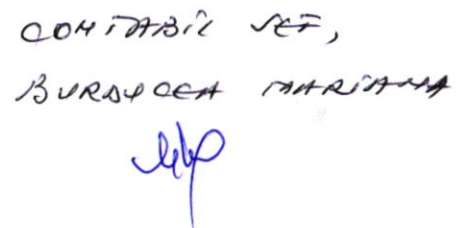 CONTABIL ȘEF,
BURDUCEA MARIANA